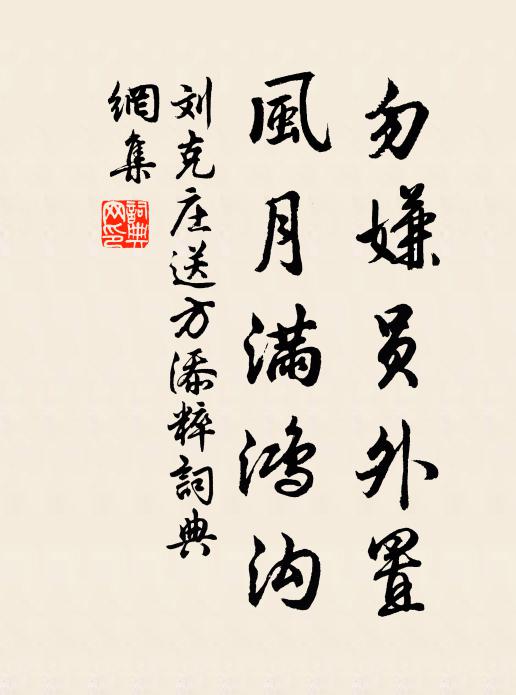 勿嫌员外置
風月满鸿沟
刘克庄送方添粹詞典
網集
詞典網印